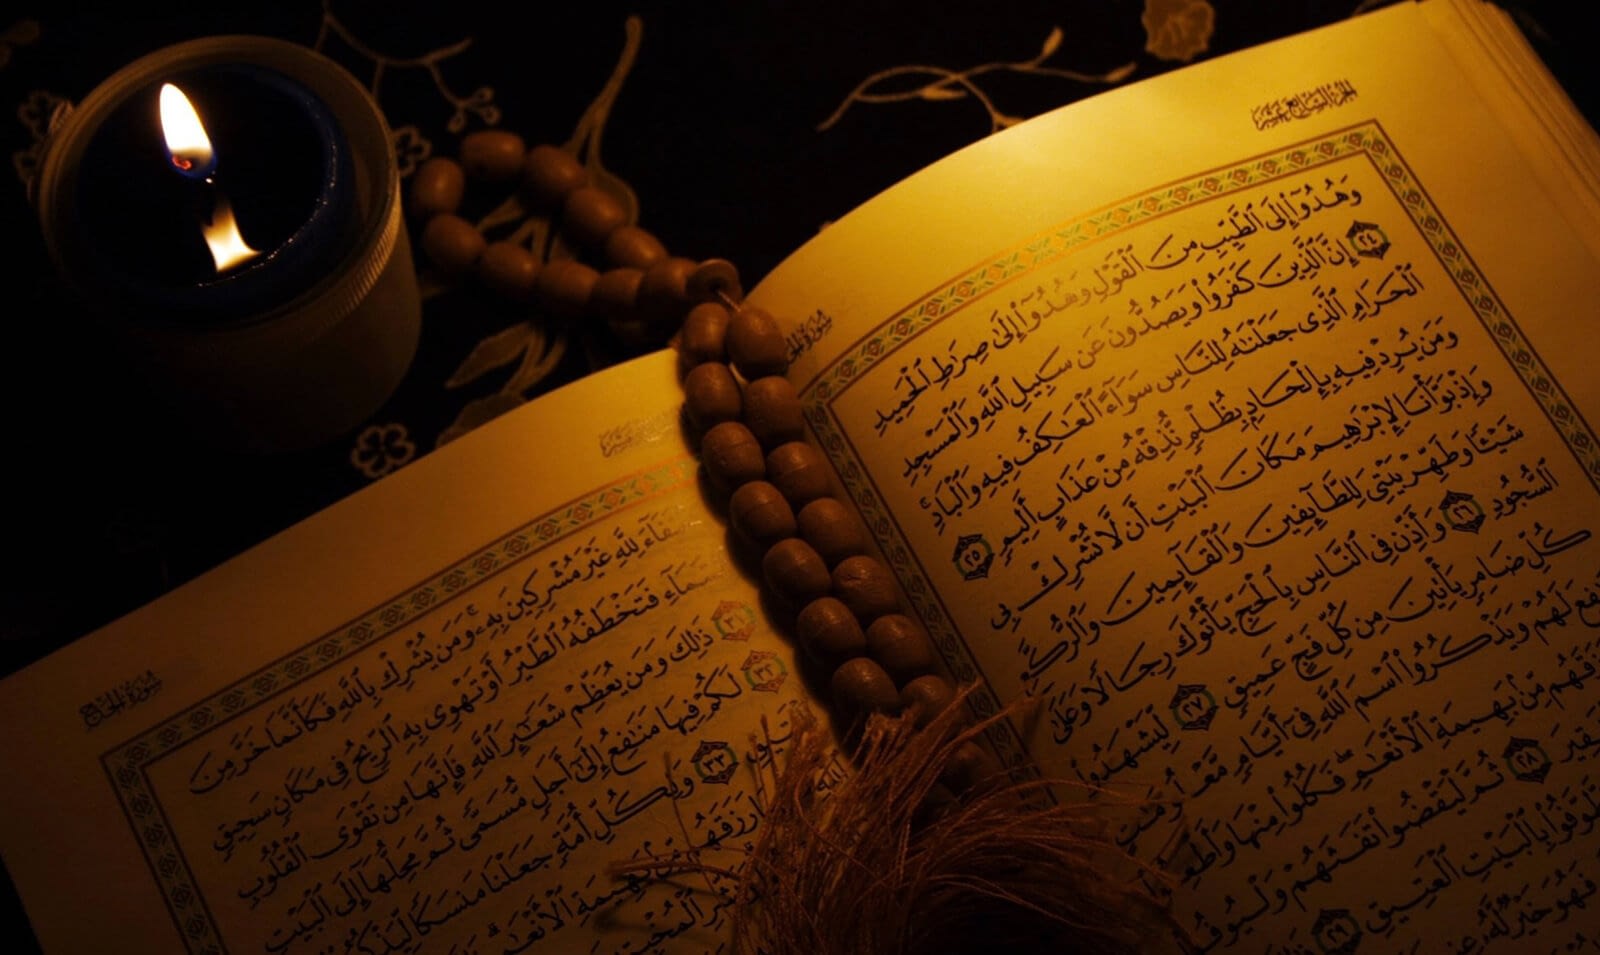 الجزء السابع عشر
سورة الحج
وَهُدُوٓا۟ إِلَى ٱلطَّيِّبِ مِنَ ٱلْقَوْلِ وَهُدُوٓا۟ إِلَىٰ صِرَٰطِ ٱلْحَمِيدِ
٢٤ إِنَّ ٱلَّذِينَ كَفَرُوا۟ وَيَصُدُّونَ عَن سَبِيلِ ٱللَّهِ وَٱلْمَسْجِدِ
ٱلْحَرَامِ ٱلَّذِى جَعَلْنَٰهُ لِلنَّاسِ سَوَآءً ٱلْعَٰكِفُ فِيهِ وَٱلْبَادِ
وَمَن يُرِدْ فِيهِ بِإِلْحَادٍۭ بِظُلْمٍ نُّذِقْهُ مِنْ عَذَابٍ أَلِيمٍ ٢٥
وَإِذْ بَوَّأْنَا لِإِبْرَٰهِيمَ مَكَانَ ٱلْبَيْتِ أَن لَّا تُشْرِكْ بِى
شَيْـًٔا وَطَهِّرْ بَيْتِىَ لِلطَّآئِفِينَ وَٱلْقَآئِمِينَ وَٱلرُّكَّعِ
ٱلسُّجُودِ ٢٦ وَأَذِّن فِى ٱلنَّاسِ بِٱلْحَجِّ يَأْتُوكَ رِجَالًا وَعَلَىٰ
كُلِّ ضَامِرٍ يَأْتِينَ مِن كُلِّ فَجٍّ عَمِيقٍ ٢٧ لِّيَشْهَدُوا۟
لَهُمْ وَيَذْكُرُوا۟ ٱسْمَ ٱللَّهِ فِىٓ أَيَّامٍ
مِّنۢ بَهِيمَةِ ٱلْأَنْعَٰمِ فَكُلُوا۟ مِنْهَا
٢٨ ثُمَّ لْيَقْضُوا۟ تَفَثَهُمْ
بِٱلْبَيْتِ ٱلْعَتِيقِ ٢٩
فَهُوَ خَيْرٌ لَّهُۥ
سورة الحج
لِلَّهِ غَيْرَ مُشْرِكِينَ بِهِۦ وَمَن يُشْرِكْ بِٱللَّهِ فَكَأَنَّمَا خَرَّ مِنَ
فَتَخْطَفُهُ ٱلطَّيْرُ أَوْ تَهْوِى بِهِ ٱلرِّيحُ فِى مَكَانٍ سَحِيقٍ
٣١ ذَٰلِكَ وَمَن يُعَظِّمْ شَعَٰٓئِرَ ٱللَّهِ فَإِنَّهَا مِن تَقْوَى ٱلْقُلُوبِ
٣٢ لَكُمْ فِيهَا مَنَٰفِعُ إِلَىٰٓ أَجَلٍ مُّسَمًّى ثُمَّ مَحِلُّهَآ إِلَى ٱلْبَيْتِ
٣٣ وَلِكُلِّ أُمَّةٍ جَعَلْنَا مَنسَكًا
بَهِيمَةِ ٱلْأَنْعَٰمِ